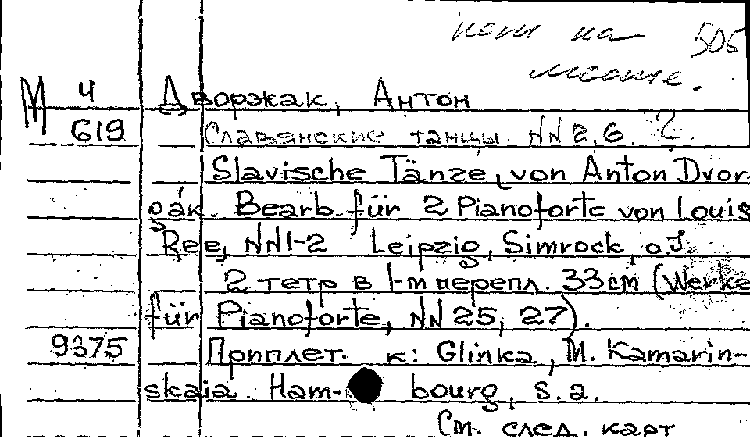 нот на 505
месте.
М 4 Дворжак, Антон
619 Славянские танцы NN 2, 6. 2.
Slavische Tänze, von Anton Dvor-
oák. Bearb. für 2 Pianoforte von Louis
Ree, NN 1-2 Leipzig, Simrock, o.J.
2 тетр в 1-м перепл. 33см (Werke
für Pianoforte, NN 25, 27).
9375 Приплет. к: Glinka, M. Kamarin-
skaia. Ham- bourg, s.a.
См. след. карт